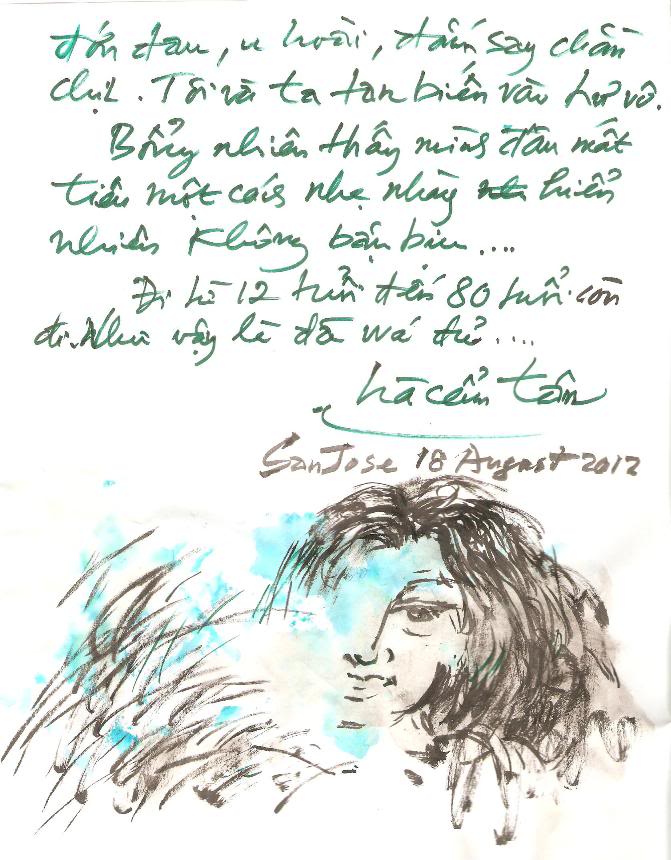 đớn đau, u hoài, đắm say chán
chưt. Tôi và ta tan biến vào hư vô.
Bổng nhiên thấy mình đau mất
tiêu một cách nhẹ nhàng hiển
nhiên không bận bịu....
Đi từ 12 tuổi đến 80 tuổi còn
đi. Như vậy là đã wá đủ....
hà cẩm tâm
San Jose 18 August 2012